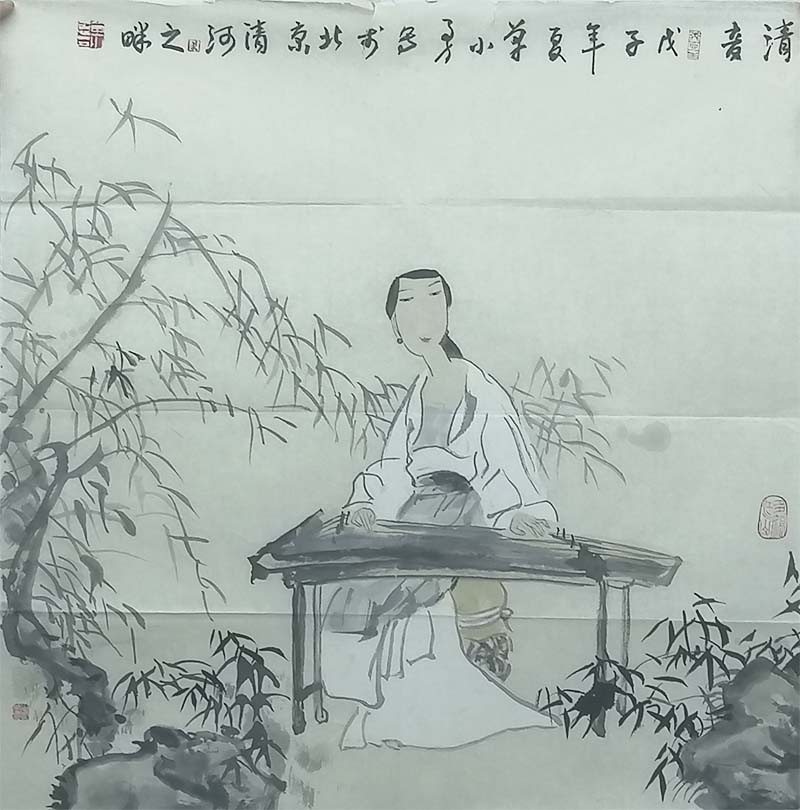 清音戊子年夏草小勇写于北京清河之畔